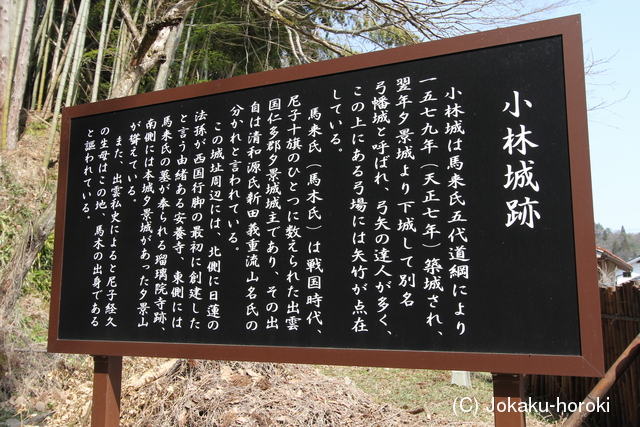 小林城跡
小林城は馬来氏五代道綱により
一五七九年（天正七年）築城され、
翌年夕景城より下城して別名
弓幡城と呼ばれ、弓矢の達人が多く、
この上にある弓場には矢竹が点在
している。
馬来氏（馬木氏）は戦国時代、
尼子十旗のひとつに数えられた出雲
国仁多郡夕景城城主であり、その出
自は清和源氏新田義重流山名氏の
分かれと言われている。
この城址周辺には、北側に日蓮の
法孫が西国行脚の最初に創建した
と言う由緒ある安養寺、東側には
馬来氏の墓が奉られる瑠璃院寺跡、
南側には本城夕景城があった夕景山
が聳えている。
また、出雲私史によると尼子経久
の生母はこの地、馬木の出身である
と謳われている。
(C) Jokaku-horoki